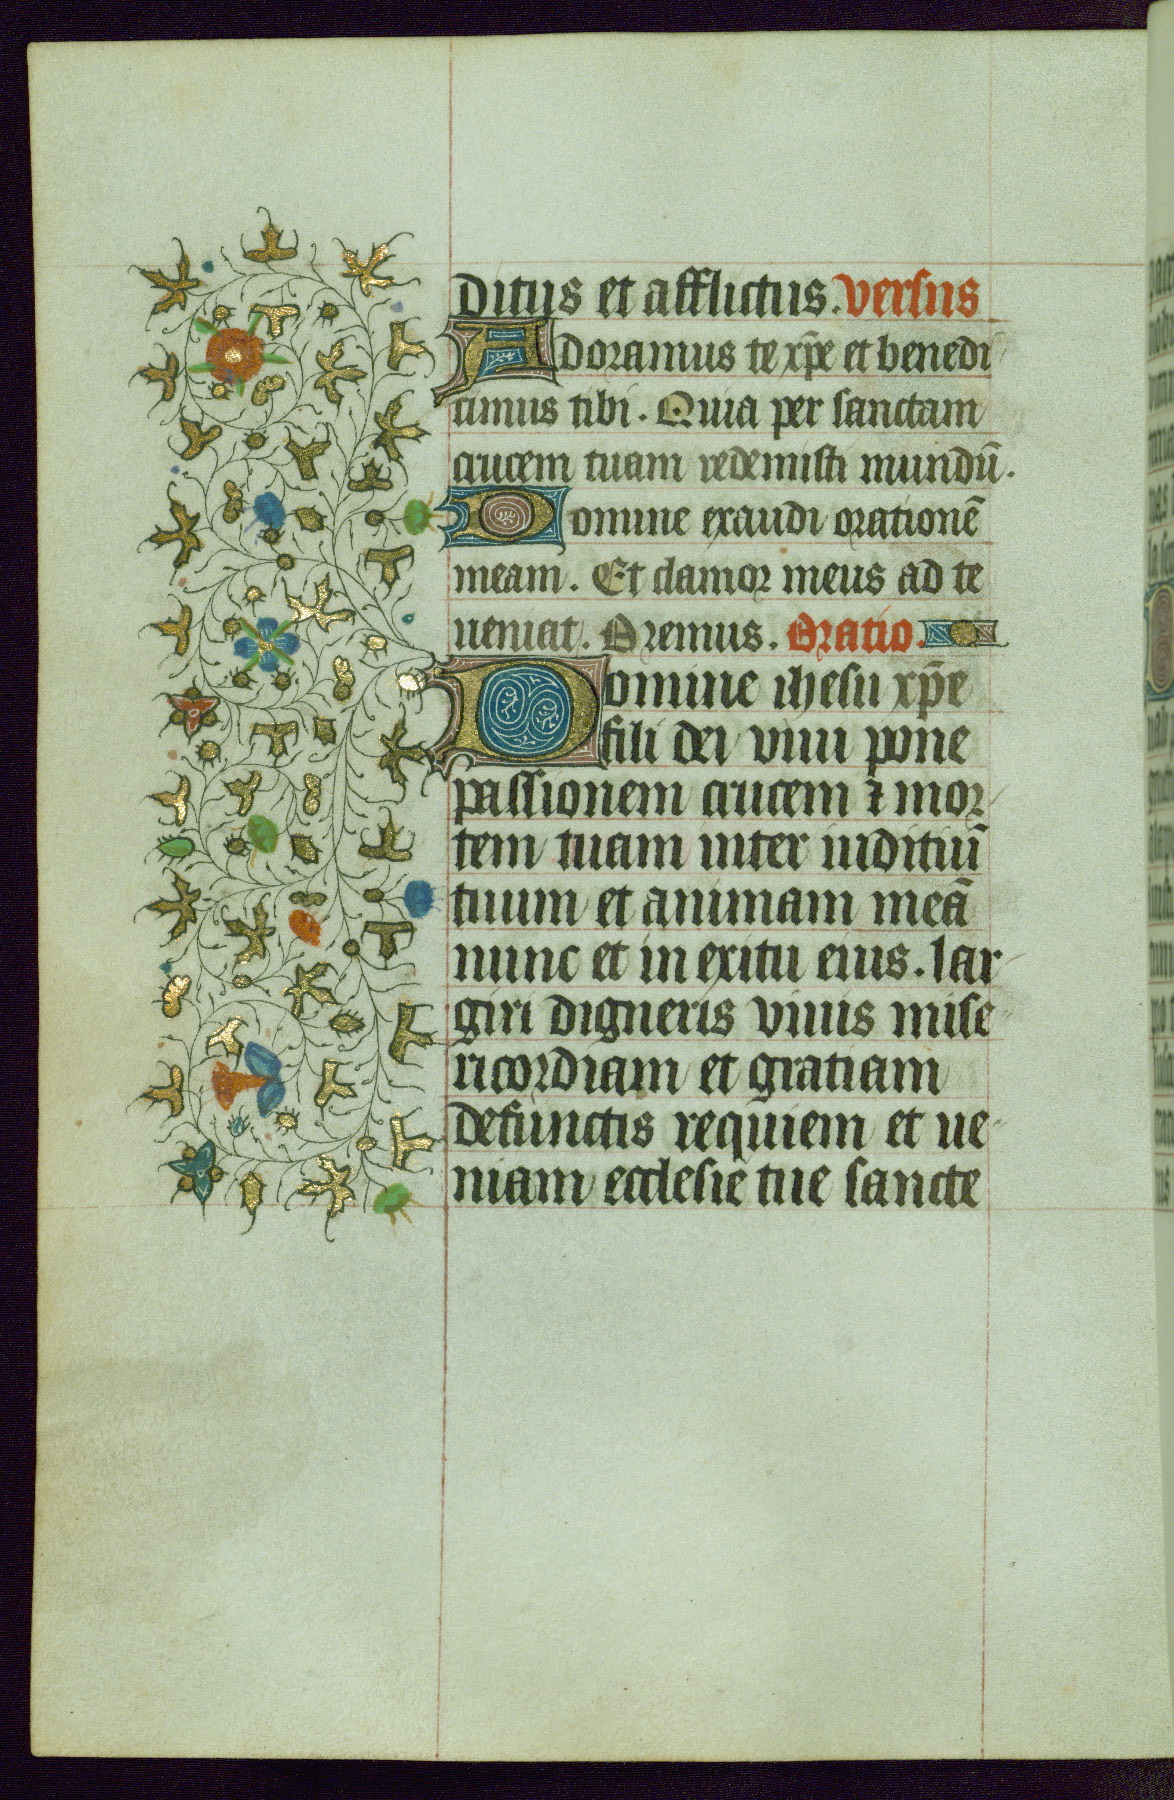 ditus et afflictus. versus
Adoramus te xp̄e et benedi
cimus tibi. Quia per sanctam
crucem tuam redemisti mundū.
Domine exaudi orationē
meam. Et clamor meus ad te
ueniat. Oremus. Oratio.
Domine ihesu xp̄e
fili dei viui pone
passionem crucem ⁊ mor
tem tuam inter iuditiū
tuum et animam meā
nunc et in exitu eius. lar
giri digneris viuis mise
ricordiam et gratiam
defunctis requiem et ue
niam ecclesie tue sancte